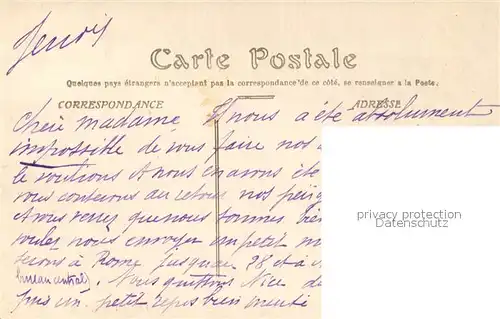 Jeudi
Carte Postale
Quelques pays étrangers n'acceptant pas la correspondance de ce côté, se renseigner à la Poste.
CORRESPONDANCE
ADRESSE
Chère madame, Il nous a été absolument
impossible de vous faire nos
le voulions
vous conterons au retour nos
que nous sommes bien
nous envoyer un petit m
à Rome jusqu'au 28 et à
bureau central. Nous quittons Nice
un petit repos bien mérité
privacy protection
Datenschutz